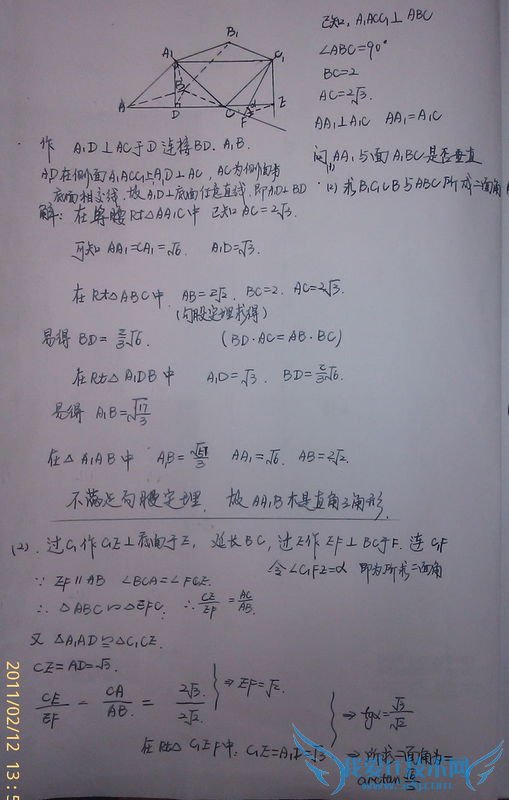 已知, A₁ACC₁⊥ABC
∠ABC=90°
BC=2
AC=2√3.
AA₁⊥A₁C AA₁=A₁C
问 AA₁与面A₁BC是否垂直
(2) 求B₁C₁CB与ABC所成二面角
A₁ B₁ C₁
A D C E
F
作 A₁D⊥AC于D 连接BD. A₁B.
A₁D在侧面A₁ACC₁上A₁D⊥AC, AC为侧面与
底面相交线. 故A₁D⊥底面任意直线. 即A₁D⊥BD
解: 在等腰Rt△AA₁C中 已知AC=2√3.
可知AA₁=CA₁=√6. A₁D=√3.
在Rt△ABC中. AB=2√2. BC=2. AC=2√3.
(勾股定理求得)
易得BD=2/3√6. (BD·AC=AB·BC)
在Rt△A₁DB中 A₁D=√3. BD=2/3√6.
易得 A₁B=√17/3
在△A₁AB中 A₁B=√51/3 AA₁=√6. AB=2√2.
不满足勾股定理. 故AA₁B不是直角三角形.
(2). 过C₁作C₁E⊥底面于E, 延长BC, 过E作EF⊥BC于F. 连C₁F
∵ EF∥AB ∠BCA=∠FCE. 令∠C₁FE=α 即为所求二面角
∴ △ABC∽△EFC. ∴ CE/EF=AC/AB.
又 △A₁AD≌△C₁CE.
CE=AD=√3.
CE/EF=CA/AB=2√3/2√2 ⇒EF=√2.
在Rt△C₁EF中: C₁E=A₁D=√3
⇒ tgα=√3/√2
⇒ 所求二面角为=
arctan
2011/02/12 13:5